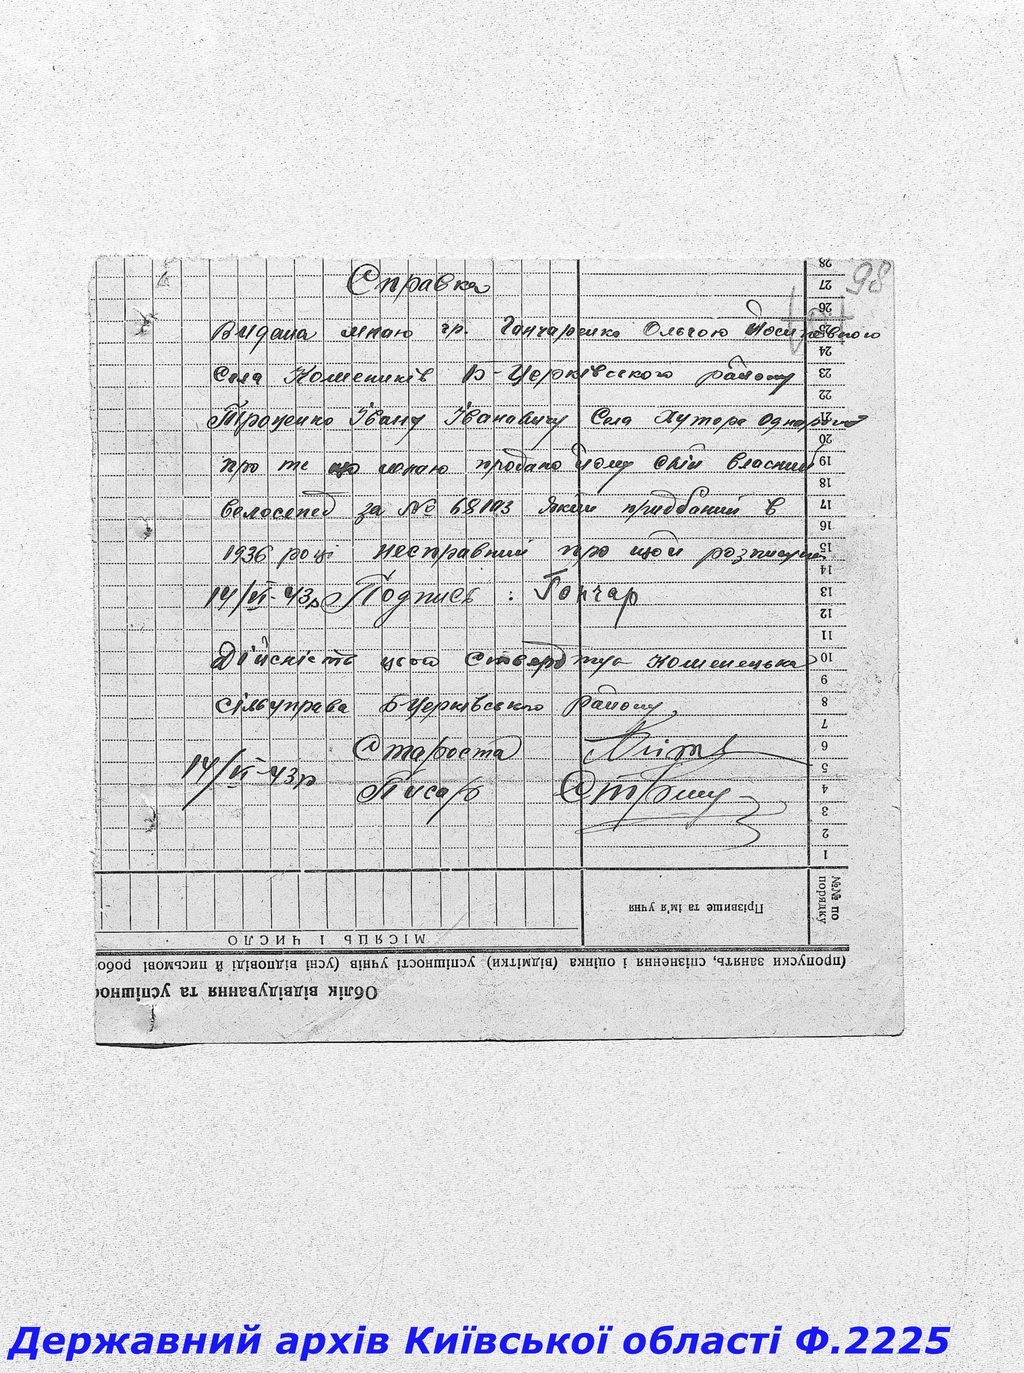 98
Справка
Видана мною гр. Гончаренко Ольгою
Села Коженики Б-Церківського району
Троценко Івану Івановичу Села Хутора
про те що мною продано йому свій власний
велосепед за № 68193 який придбаний в
1936 році несправний про що й розписуюсь
14/VI-43р Подпись : Гончар
Дійсність цього Стверджує
сільуправа Б-Церківського району
Староста
14/VI-43р Писар
28
27
26
25
24
23
22
21
20
19
18
17
16
15
14
13
12
11
10
9
8
7
6
5
4
3
2
1
№№ по порядку
Прізвище та ім'я учня
МІСЯЦЬ І ЧИСЛО
(пропуски занять, спізнення і оцінка (відмітки) успішності учнів (усні відповіді й письмові робо
Облік відвідування та успішнос
Державний архів Київської області Ф.2225